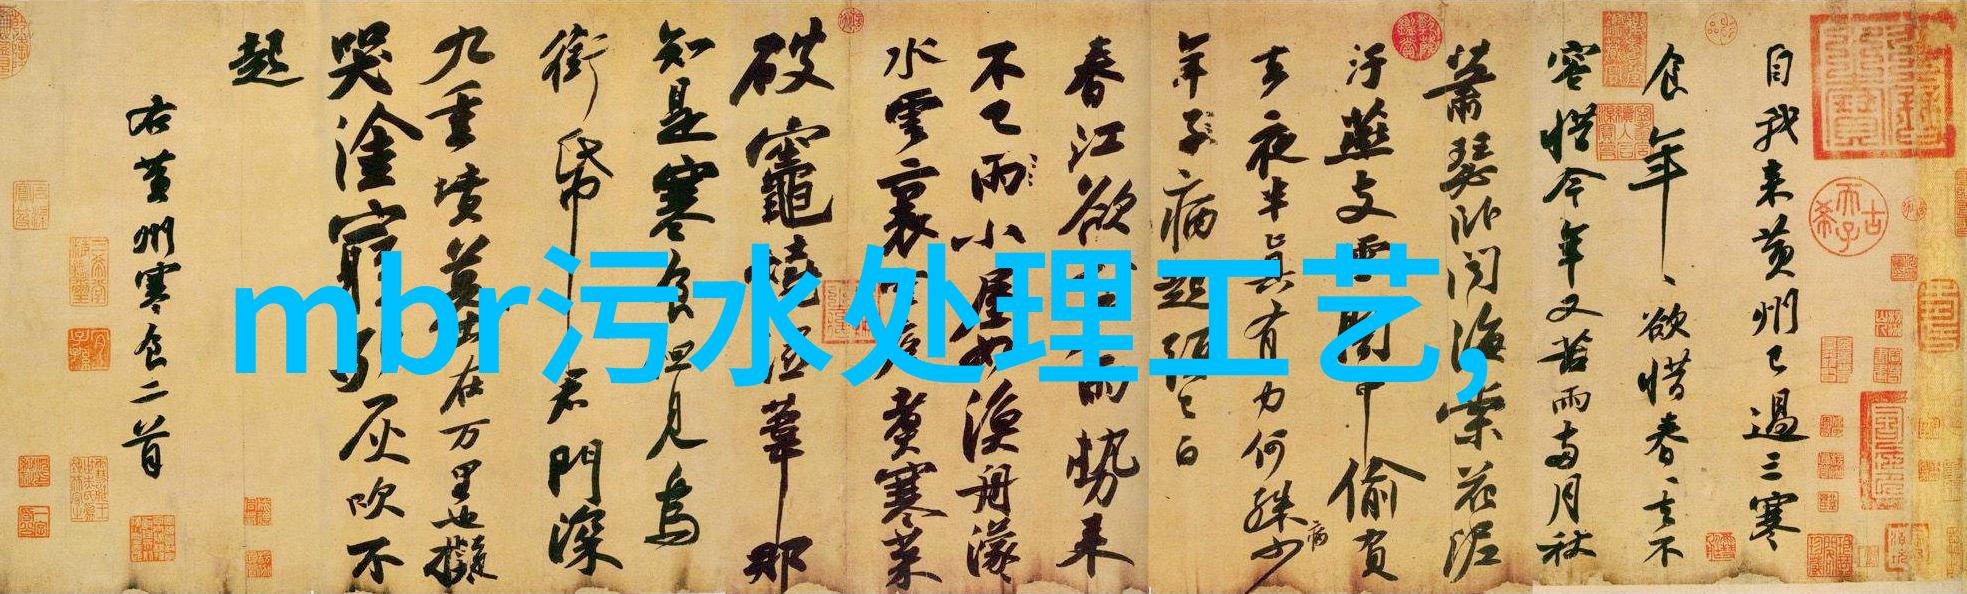 自我来黄州已過三寒
食年、欲惜春、去不
容惜今年又苦雨两月秋
萧瑟卧闻海棠花泥
汙燕支雪闇中偷負
去夜半真有力何殊少
年子病起须已白
春江欲入户雨势来
不已雨小屋如渔舟濛
水雲裏空庖煮寒菜
破竈燒湿葦那
知是寒食但見烏
銜帋君門深
九重墳墓在万里也擬
哭塗窮死灰吹不
起
右黄州寒食二首
mbr污水处理工艺,